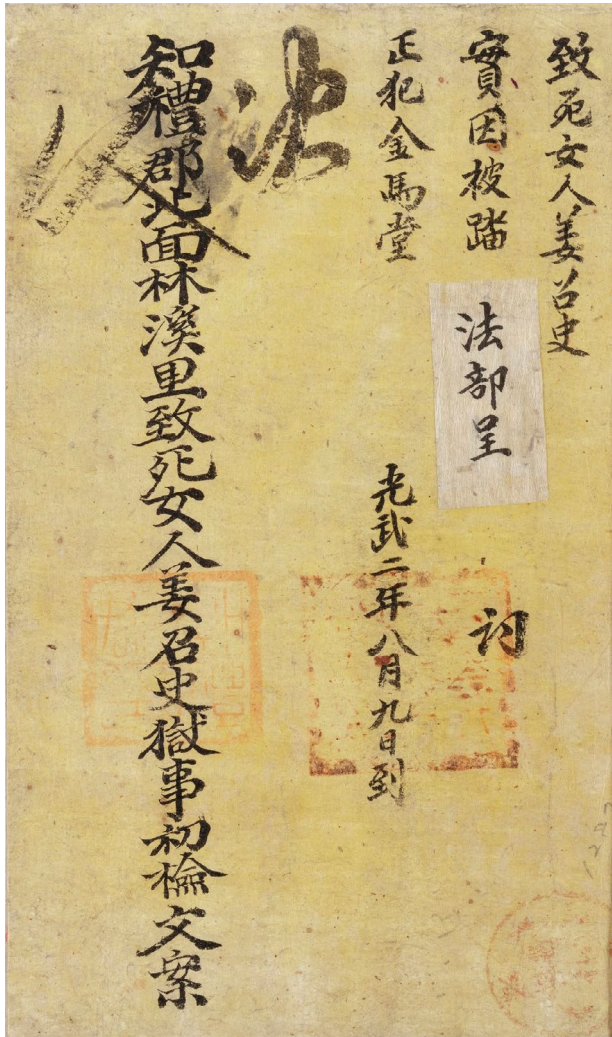 致死女人姜召史
實因被踏
正犯金馬堂
法部呈
光武二年八月九日到
知禮郡北面林溪里致死女人姜召史獄事初檢文案